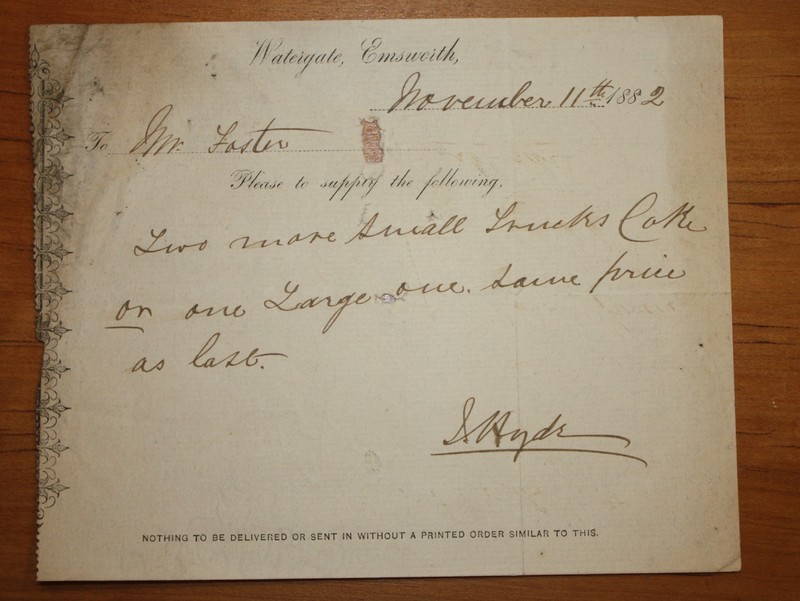 Watergate, Emsworth,
November 11th 1882
To Mr. Foster
Please to supply the following.
Two more small Trucks Coke
or one Large one. same price
as last.
Hyde
NOTHING TO BE DELIVERED OR SENT IN WITHOUT A PRINTED ORDER SIMILAR TO THIS.